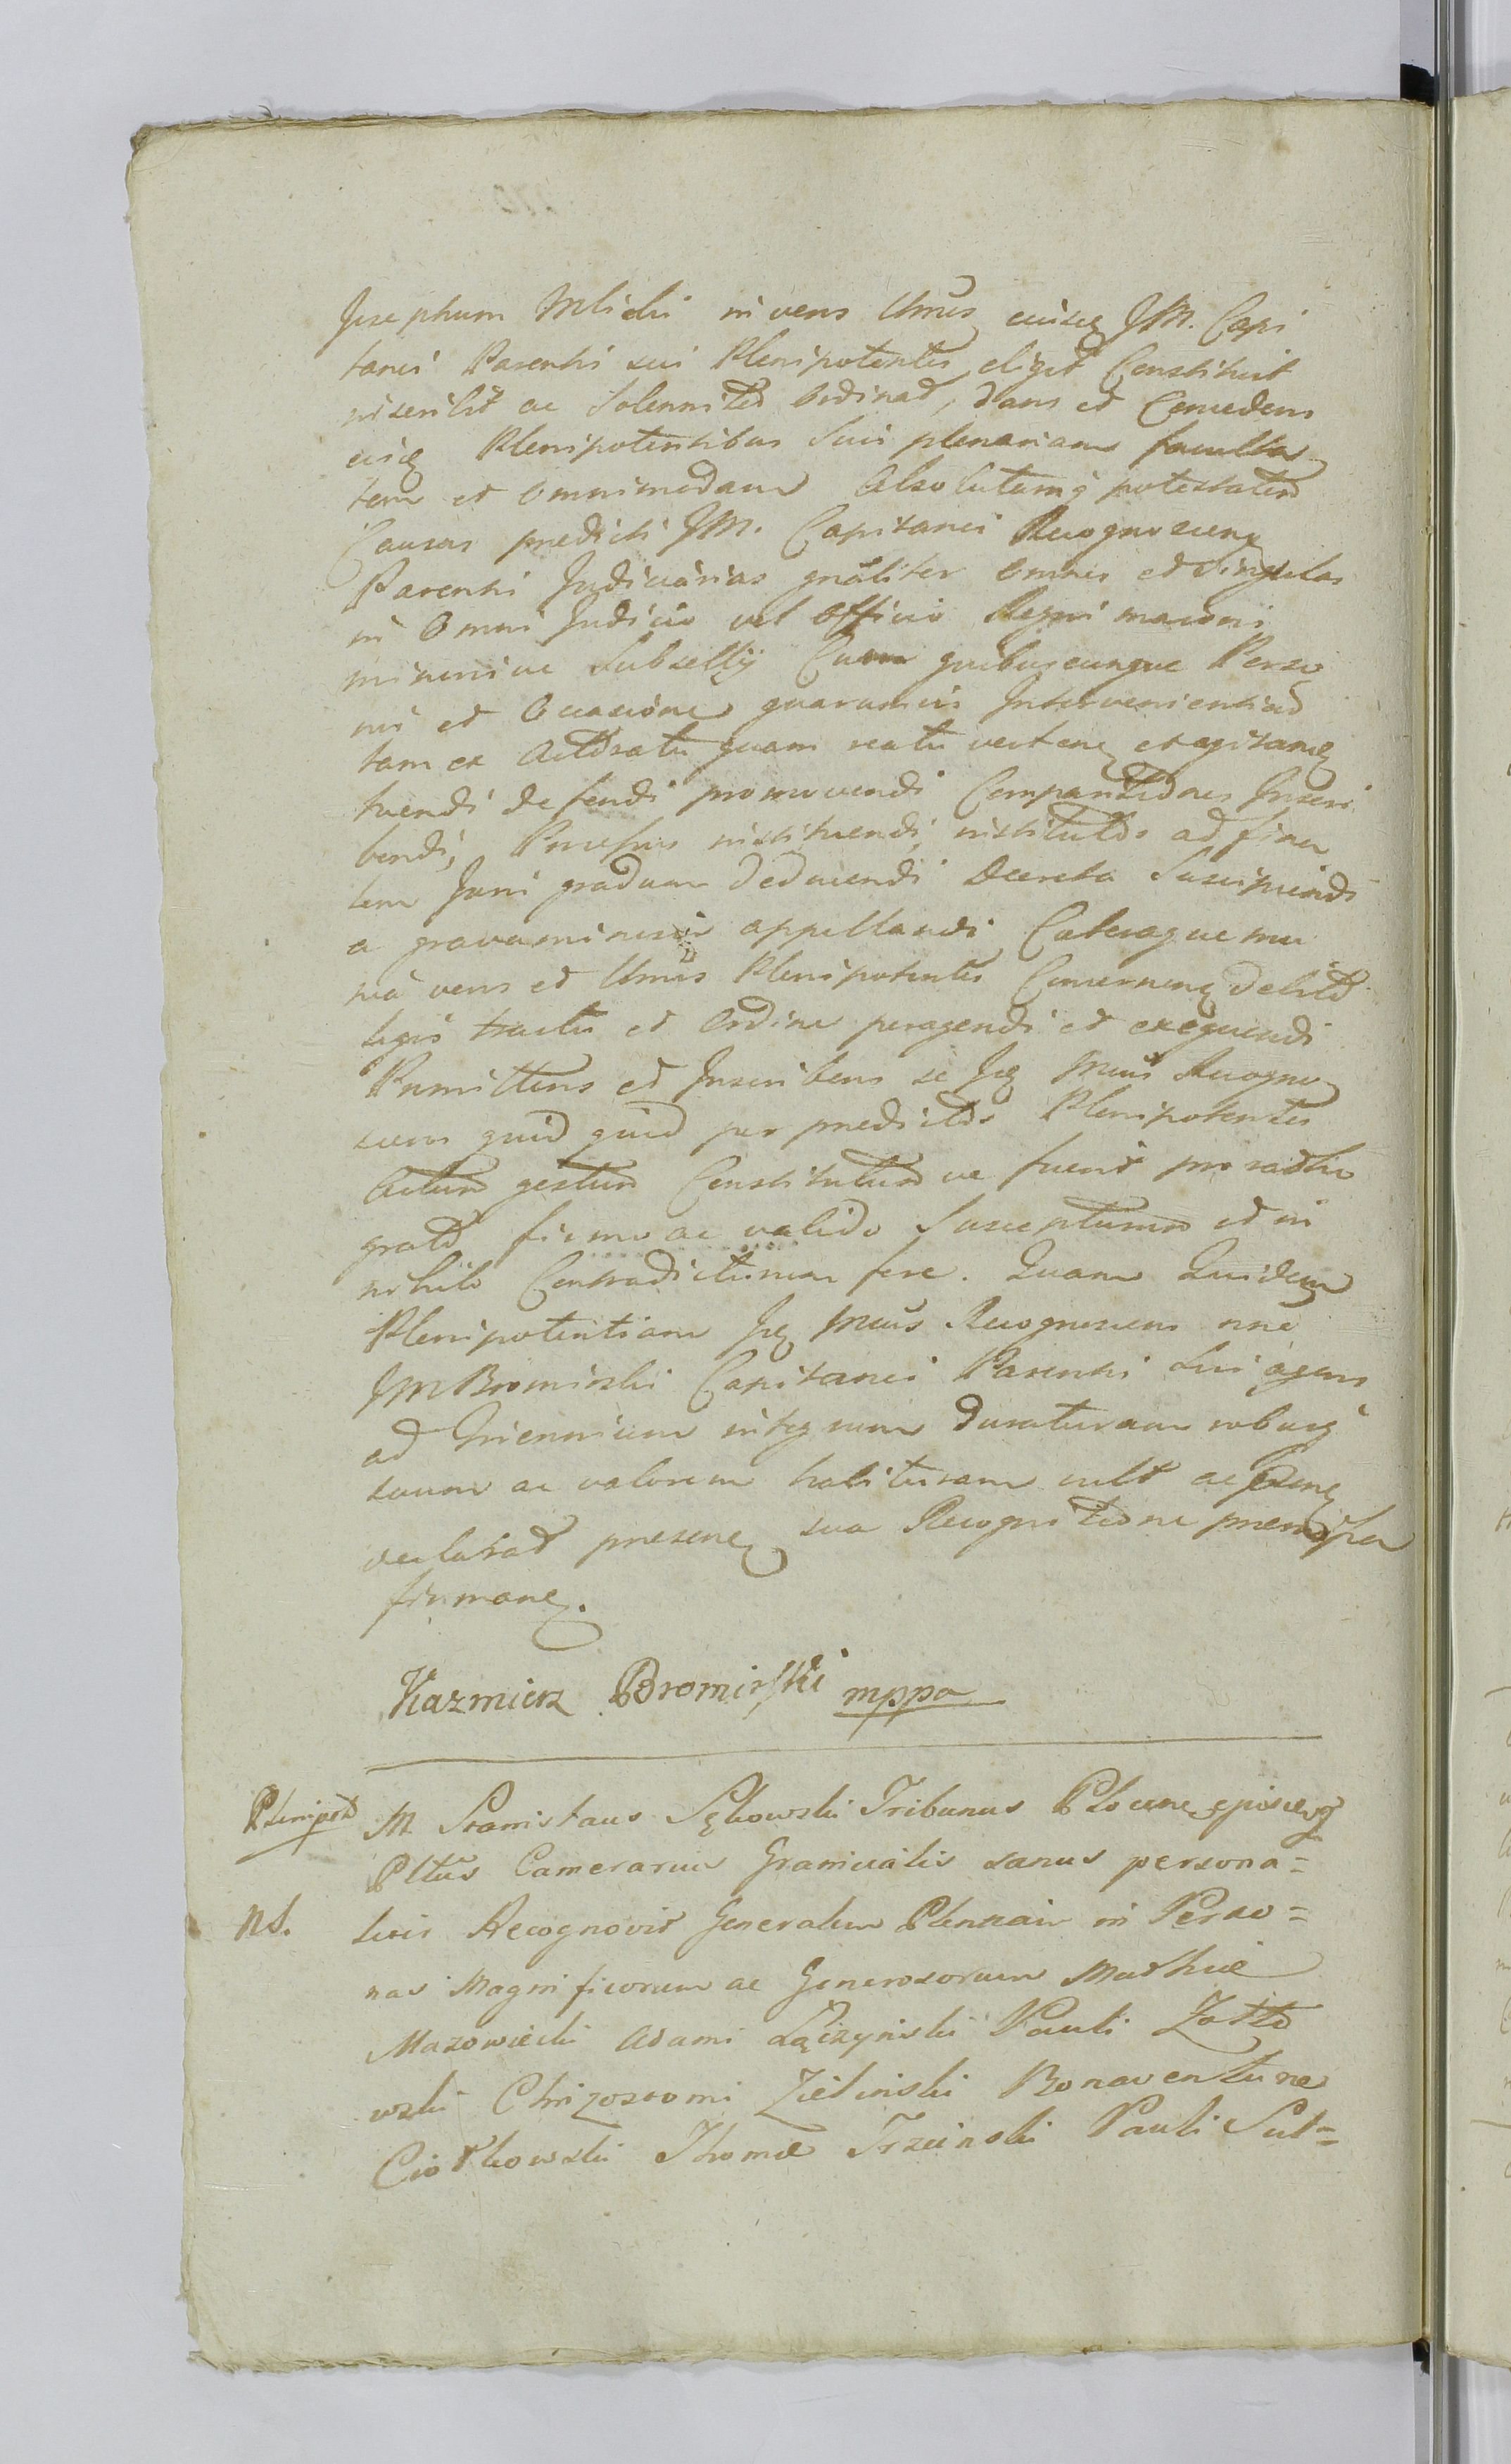 Josephum Mlicki in veros Umos eiusq JM. Capi
tanei Parentis sui Plenipotentes eligit Constituit
inscribit ac Solenniter Ordinat, dans et Concedens
eisq Plenipotentibus Suis plenariam faculta
tem et Omnimodam Absolutamq potestatem
Causas predicti JM. Capitanei Recognoscen
Parentis Judiciarias gnaliter Omnes et Singulas
in Omni Judicio vel Officio Regni maioris
minorisve Subsellij Cum quibuscunque Perso
nis et Occasione quarumvis Intervenientiad
tam ex Actoratu quam reatu verten et agitan
tuendi defendi promovendi Comparitiones Inscri
bendi, Processus instituendi, institutos ad fina
lem Juris gradum deducendi Decreta Suscipiendi
a gravaminosis appellandi Caeteraque mu
nia veros et Umos Plenipotentes Concernen debito
legis tractu et Ordine peragendi et exequendi
Promittens et Inscribens se Jq Mcus Recogno
scens quid quid per predictos Plenipotentes
Actum gestum Constitutum ve fuerit pro ratho
grato firmo ac valido Suscepturum et in
nihilo Contradicturum fore. Quam Quidem
Plenipotentiam Jq Mcus Recognoscens nne
JM Bromirski Capitanei Parentis Sui agens
ad Triennium integrum duraturam roburq
suum ac valorem habituram vult ac
declarat presen sua Recognitione premissa
firman.
Kazmierz Bromirski mppa
Plenipot M Stanislaus Sękowski Tribunus Plocen
Pltus Camerarius Granicialis sanus persona=
NS. liter Recognovit Generalem Plennam in Perso=
nas Magnificorum ac Generosorum Mathie
Mazowiecki Adami Łączyński Pauli Zołto
wski Chrizostomi Zieliński Bonaventurae
Ciółkowski Thomae Trzciński Pauli Sul=